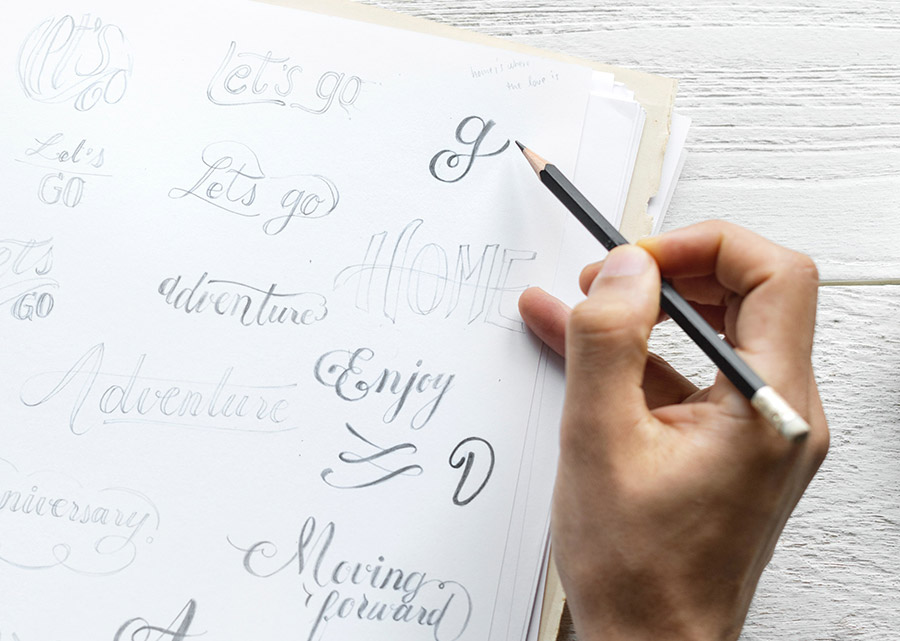 Let's
GO
Let's go
home is where
the love is
g
Let's
GO
Let's go
HOME
Lets
GO
adventure
Enjoy
Adventure
D
nniversary.
Moving
forward
A